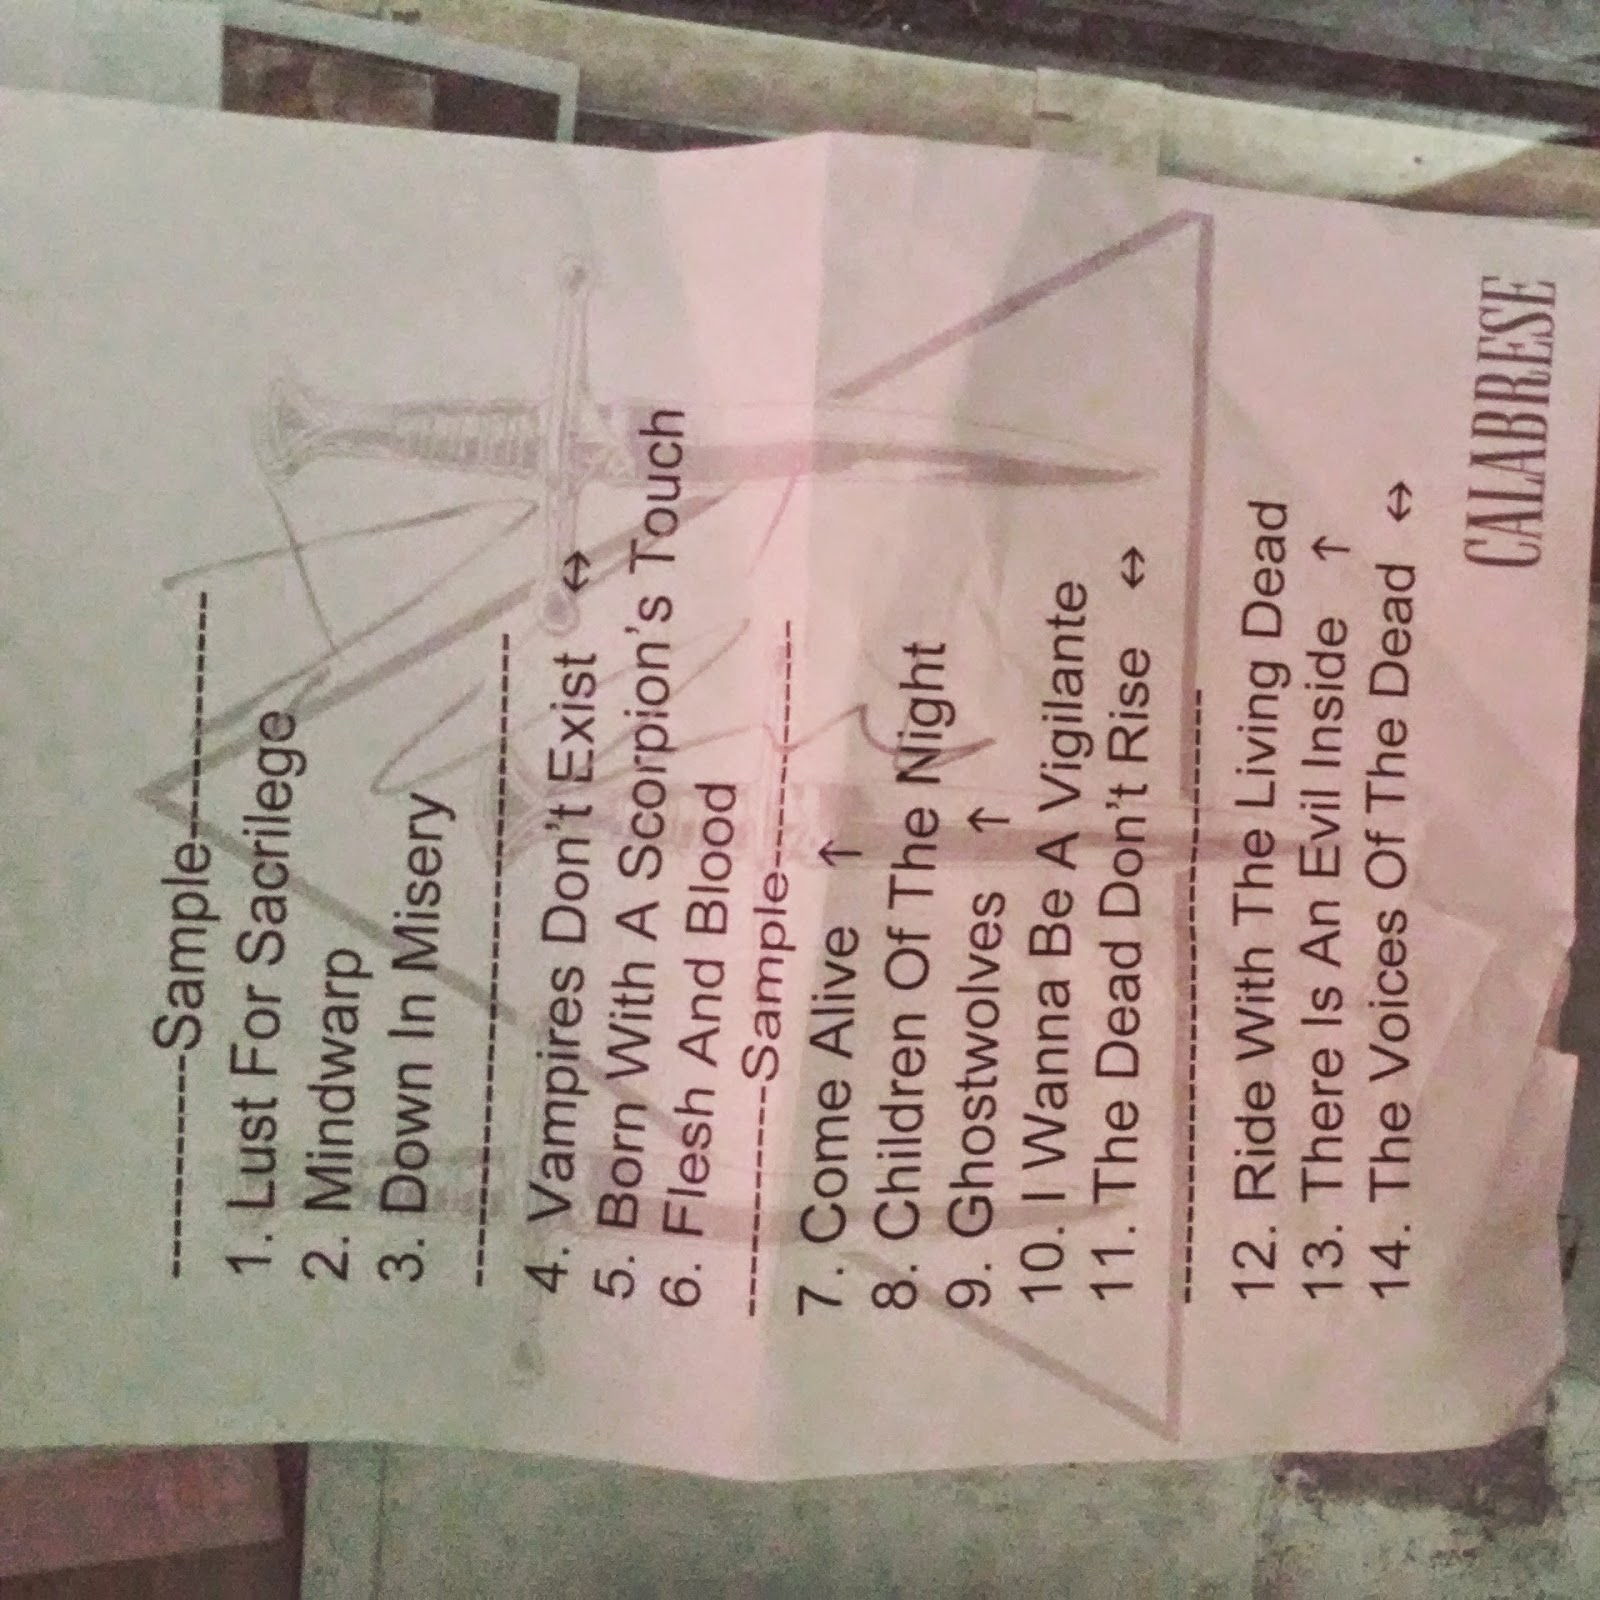 ---------Sample---------
1. Lust For Sacrilege
2. Mindwarp
3. Down In Misery
---------------------------
4. Vampires Don't Exist ↔
5. Born With A Scorpion's Touch
6. Flesh And Blood
---------Sample---------
7. Come Alive ↑
8. Children Of The Night
9. Ghostwolves ↑
10. I Wanna Be A Vigilante
11. The Dead Don't Rise ↔
---------------------------
12. Ride With The Living Dead
13. There Is An Evil Inside ↑
14. The Voices Of The Dead ↔
CALABRESE